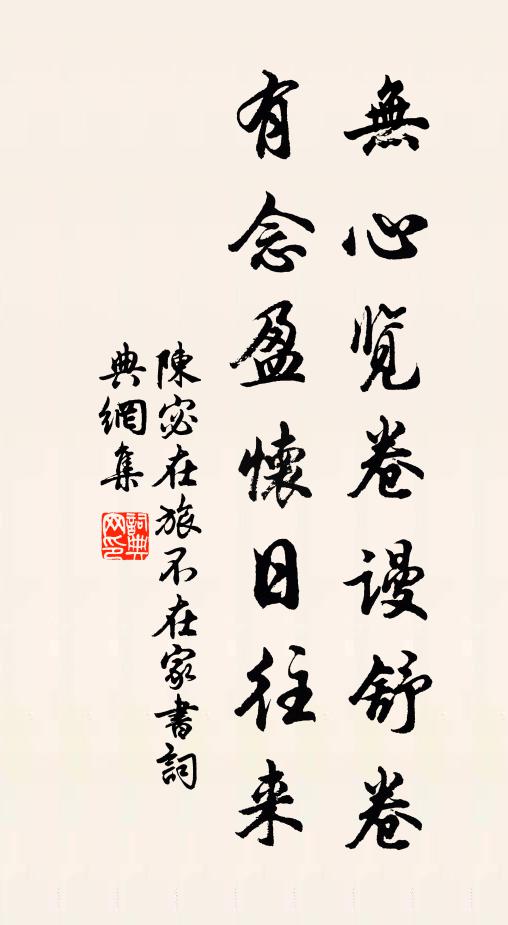 無心覽卷謾舒卷
有念盈懷日往来
陳宓在旅不在家書詞
典網集
詞典網印